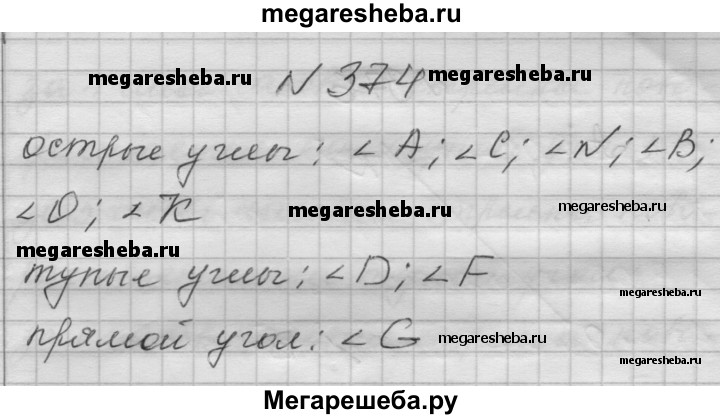 megaresheba.ru
megaresheba.ru N 374 megaresheba.ru
острые углы: ∠A; ∠C; ∠N; ∠B;
∠O; ∠K megaresheba.ru megaresheba.ru
megaresheba.ru
тупые углы: ∠D; ∠F megaresheba.ru
прямой угол: ∠G megaresheba.ru
megaresheba.ru
Мегарешеба.ру